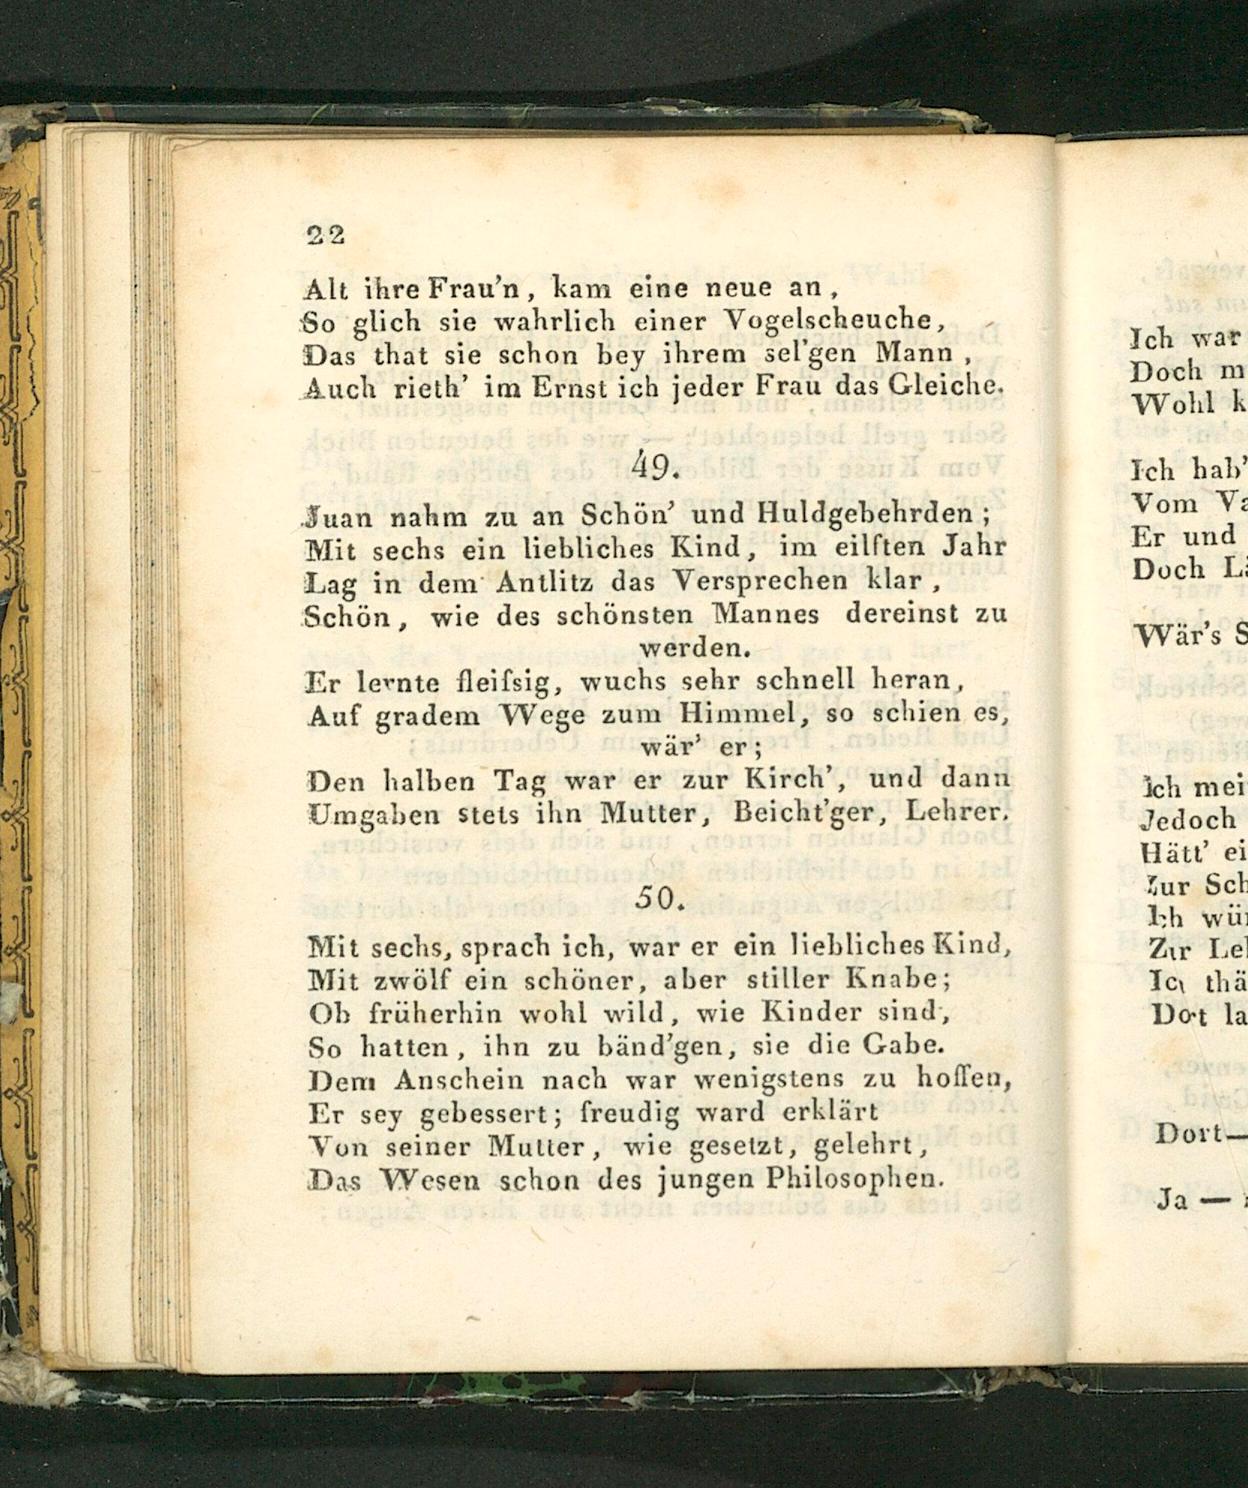 22
Alt ihre Frau'n, kam eine neue an,
So glich sie wahrlich einer Vogelscheuche,
Das that sie schon bey ihrem sel'gen Mann,
Auch rieth' im Ernst ich jeder Frau das Gleiche.
49.
Juan nahm zu an Schön' und Huldgebehrden;
Mit sechs ein liebliches Kind, im eilften Jahr
Lag in dem Antlitz das Versprechen klar,
Schön, wie des schönsten Mannes dereinst zu
werden.
Er lernte fleiſsig, wuchs sehr schnell heran,
Auf gradem Wege zum Himmel, so schien es,
wär' er;
Den halben Tag war er zur Kirch', und dann
Umgaben stets ihn Mutter, Beicht'ger, Lehrer.
50.
Mit sechs, sprach ich, war er ein liebliches Kind,
Mit zwölf ein schöner, aber stiller Knabe;
Ob früherhin wohl wild, wie Kinder sind,
So hatten, ihn zu bänd'gen, sie die Gabe.
Dem Anschein nach war wenigstens zu hoffen,
Er sey gebessert; freudig ward erklärt
Von seiner Mutter, wie gesetzt, gelehrt,
Das Wesen schon des jungen Philosophen.
Ich war
Doch m
Wohl k
Ich hab'
Vom Va
Er und
Doch Lä
Wär's S
Ich mei
Jedoch
Hätt' ei
Zur Sch
Ich wü
Zur Le
Ich thä
Dort la
Dort—
Ja —